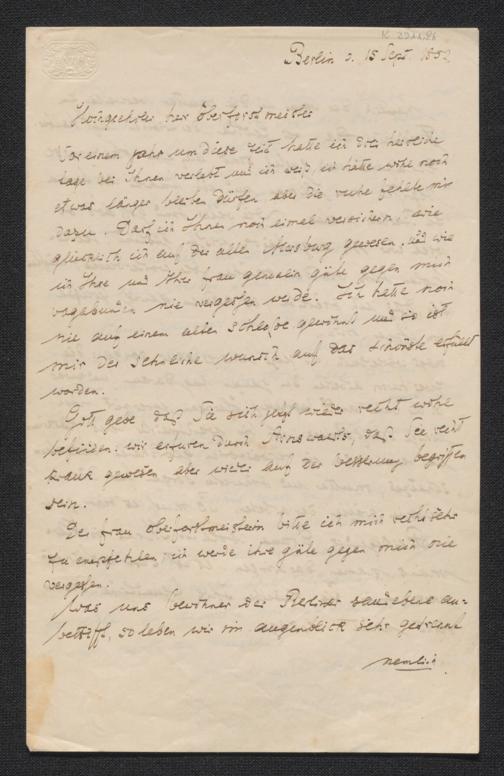 K 2911,96
Berlin d. 15 Sept. 1852
Hochgeehrter herr Oberforstmeister
Vor einem jahr um diese zeit hatte ich drei herrliche
tage bei Ihnen verlebt und ich weiß, ich hätte wohl noch
etwas länger bleiben dürfen aber die ruhe fehlte mir
dazu. Darf ich Ihnen noch einmal versichern, wie
glücklich ich auf der alten gewesen, und wie
ich Ihre und Ihrer frau gemalin güte gegen mich
vagabunden nie vergessen werde. Ich hatte noch
nie auf einem alten schlosse gewohnt und so ist
mir der wunsch auf das schönste erfüllt
worden.
Gott gebe daß Sie sich jetzt wieder recht wohl
befinden. wir erfuren durch Arnswaldts, daß Sie recht
krank gewesen aber wieder auf der besserung begriffen
sein.
Der frau Oberforstmeisterin bitte ich mich recht sehr
zu empfehlen, ich werde ihre güte gegen mich nie
vergessen.
Was uns bewohner der Berliner sandebene an-
betrifft, so leben wir im augenblick sehr getrennt
nemlich